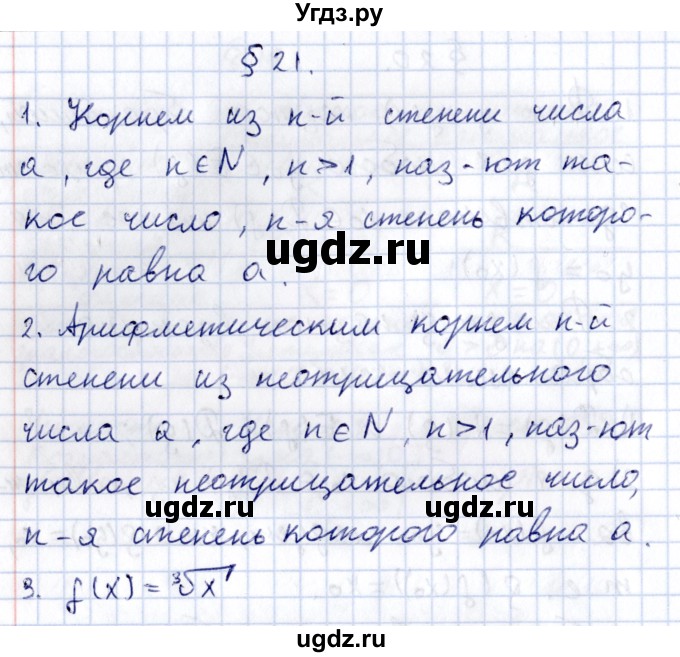 Угдз.ру
§ 21.
1. Корнем из n-й степени числа
a, где n∈N, n>1, наз-ют та-
кое число, n-я степень которо-
ugdz.ru
го равна a.
2. Арифметическим корнем n-й
степени из неотрицательного
числа a, где n∈N, n>1, наз-ют
такое неотрицательное число,
ugdz.ru ugdz.ru
n-я степень которого равна a.
3. f(x) = ³√x
ugdz.ru